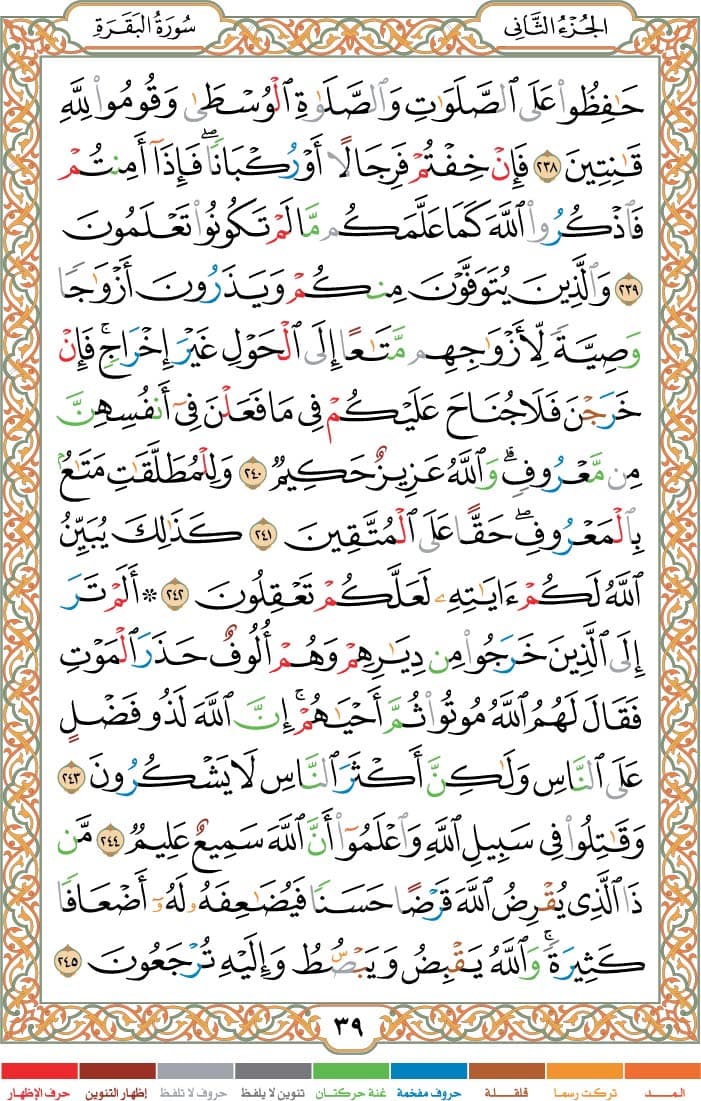 الجُزْءُ الثَّانِي
سُورَةُ البَقَرَةِ
حَٰفِظُوا۟ عَلَى ٱلصَّلَوَٰتِ وَٱلصَّلَوٰةِ ٱلْوُسْطَىٰ وَقُومُوا۟ لِلَّهِ
قَٰنِتِينَ ٢٣٨ فَإِنْ خِفْتُمْ فَرِجَالًا أَوْ رُكْبَانًا ۖ فَإِذَآ أَمِنتُمْ
فَٱذْكُرُوا۟ ٱللَّهَ كَمَا عَلَّمَكُم مَّا لَمْ تَكُونُوا۟ تَعْلَمُونَ
٢٣٩ وَٱلَّذِينَ يُتَوَفَّوْنَ مِنكُمْ وَيَذَرُونَ أَزْوَٰجًا
وَصِيَّةً لِّأَزْوَٰجِهِم مَّتَٰعًا إِلَى ٱلْحَوْلِ غَيْرَ إِخْرَاجٍ ۚ فَإِنْ
خَرَجْنَ فَلَا جُنَاحَ عَلَيْكُمْ فِى مَا فَعَلْنَ فِىٓ أَنفُسِهِنَّ
مِن مَّعْرُوفٍ ۗ وَٱللَّهُ عَزِيزٌ حَكِيمٌ ٢٤٠ وَلِلْمُطَلَّقَٰتِ مَتَٰعٌۢ
بِٱلْمَعْرُوفِ ۖ حَقًّا عَلَى ٱلْمُتَّقِينَ ٢٤١ كَذَٰلِكَ يُبَيِّنُ
ٱللَّهُ لَكُمْ ءَايَٰتِهِۦ لَعَلَّكُمْ تَعْقِلُونَ ٢٤٢ * أَلَمْ تَرَ
إِلَى ٱلَّذِينَ خَرَجُوا۟ مِن دِيَٰرِهِمْ وَهُمْ أُلُوفٌ حَذَرَ ٱلْمَوْتِ
فَقَالَ لَهُمُ ٱللَّهُ مُوتُوا۟ ثُمَّ أَحْيَٰهُمْ ۚ إِنَّ ٱللَّهَ لَذُو فَضْلٍ
عَلَى ٱلنَّاسِ وَلَٰكِنَّ أَكْثَرَ ٱلنَّاسِ لَا يَشْكُرُونَ ٢٤٣
وَقَٰتِلُوا۟ فِى سَبِيلِ ٱللَّهِ وَٱعْلَمُوٓا۟ أَنَّ ٱللَّهَ سَمِيعٌ عَلِيمٌ ٢٤٤ مَّن
ذَا ٱلَّذِى يُقْرِضُ ٱللَّهَ قَرْضًا حَسَنًا فَيُضَٰعِفَهُۥ لَهُۥٓ أَضْعَافًا
كَثِيرَةً ۚ وَٱللَّهُ يَقْبِضُ وَيَبْصُۜطُ وَإِلَيْهِ تُرْجَعُونَ ٢٤٥
٣٩
المــــد تركت رسما قلقــلة حروف مفخمة غنة حركتان تنوين لا يلفظ حروف لا تلفظ إظهار التنوين حرف الإظهار